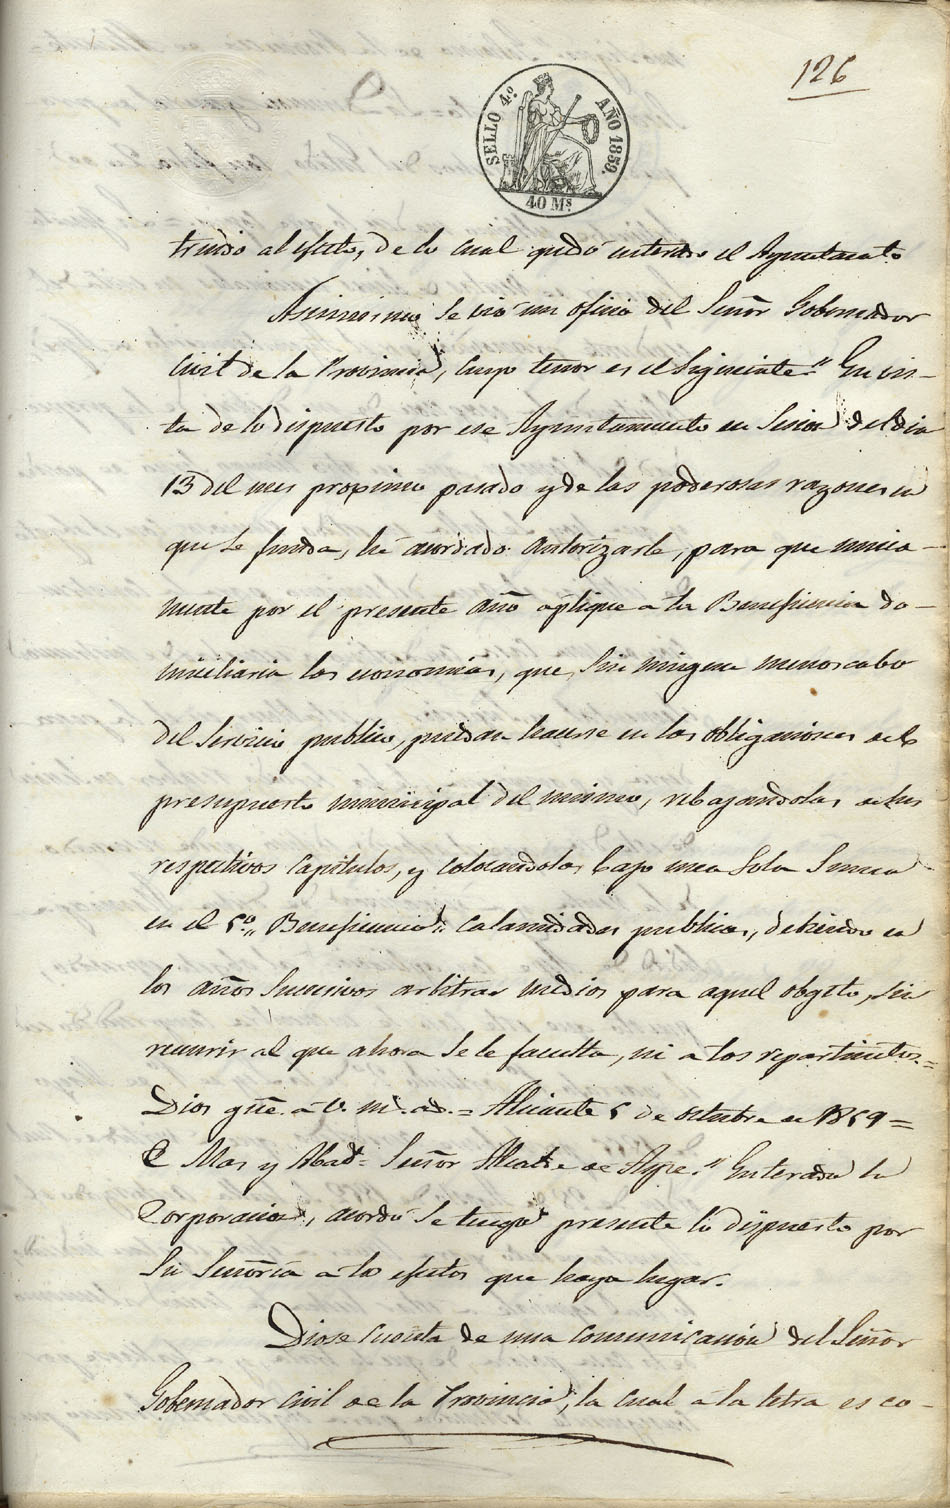 126
SELLO 4.º AÑO 1859.
40 Ms
truido al efecto, de lo cual quedó enterado el Ayuntamto
Asimismo se vió un oficio del Señor Gobernador
Civil de la Provincia, cuyo tenor es el Siguiente." En vis-
ta de lo dispuesto por ese Ayuntamiento en Sesion del dia
13 del mes proximo pasado y de las poderosas razones en
que se funda, hé acordado autorizarle, para que unica-
mente por el presente año aplique a la Beneficencia do-
miciliaria las economias, que, sin ninguna menoscabo
del Servicio publico, puedan hacerse en las obligaciones del
presupuesto municipal del mismo, rebajandolas de sus
respectivos Capitulos, y colocandolas bajo una Sola Suma
en el 5º,, Beneficencia,, Calamidades publicas, debiendo en
los años Sucesivos arbitrar medios para aquel obgeto, sin
recurrir al que ahora se le faculta, ni a los repartimtos.=
Dios gũe. a V. m.s a.s = Alicante 5 de octubre de 1859 =
Mas y Abad = Señor Alcalde de Aspe." Enterada la
Corporacion, acordó se tenga presente lo dispuesto por
Su Señoria a los efectos que haya lugar.
Diose cuenta de una comunicación del Señor
Gobernador Civil de la Provincia, la cual a la letra es co-